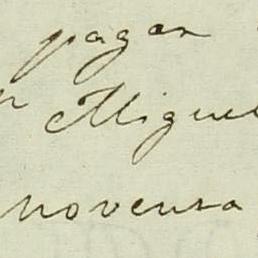 pagar
n Miguel
noventa